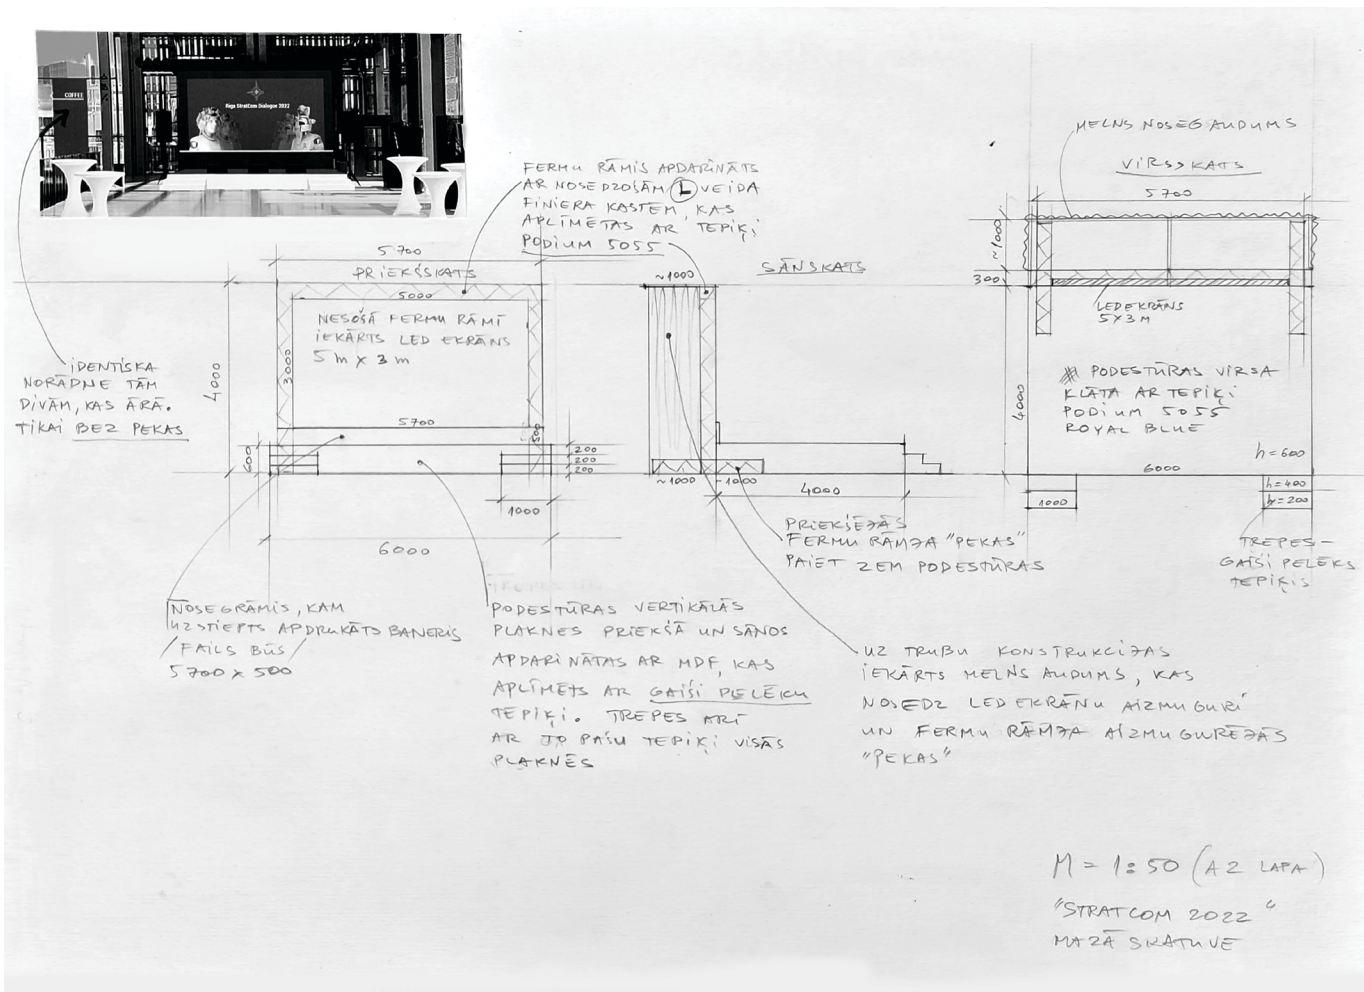 COFFEE
Riga StratCom Dialogue 2022
IDENTISKA
NORĀDNE TĀM
DIVĀM, KAS ĀRĀ.
TIKAI BEZ PEKAS
FERMU RĀMIS APDARINĀTS
AR NOSEDZOŠĀM L VEIDA
FINIERA KASTĒM, KAS
APLĪMĒTAS AR TEPIĶI
PODIUM 5055
5700
PRIEKŠSKATS
5000
NESOŠĀ FERMU RĀMĪ
IEKĀRTS LED EKRĀNS
5 m x 3 m
4000
3000
5700
500
600
200
200
200
1000
6000
NOSEGRĀMIS, KAM
UZSTIEPTS APDRUKĀTS BANERIS
/FAILS BŪS/
5700 x 500
PODESTŪRAS VERTIKĀLĀS
PLAKNES PRIEKŠĀ UN SĀNOS
APDARINĀTAS AR MDF, KAS
APLĪMĒTS AR GAIŠI PELĒKU
TEPIĶI. TREPES ARĪ
AR TO PAŠU TEPIĶI VISĀS
PLAKNĒS
SĀNSKATS
~1000
~1000
~1000
4000
PRIEKŠĒJĀS
FERMU RĀMJA "PEKAS"
PAIET ZEM PODESTŪRAS
UZ TRUBU KONSTRUKCIJAS
IEKĀRTS MELNS AUDUMS, KAS
NOSEDZ LED EKRĀNU AIZMUGURI
UN FERMU RĀMJA AIZMUGURĒJĀS
"PEKAS"
MELNS NOSEGAUDUMS
VIRSSKATS
5700
~1000
300
LED EKRĀNS
5x3 m
4000
PODESTŪRAS VIRSA
KLĀTA AR TEPIĶI
PODIUM 5055
ROYAL BLUE
h=600
6000
1000
h=400
h=200
TREPES-
GAIŠI PELĒKS
TEPIĶIS
M = 1:50 (A2 LAPA)
"STRATCOM 2022"
MAZĀ SKATUVE